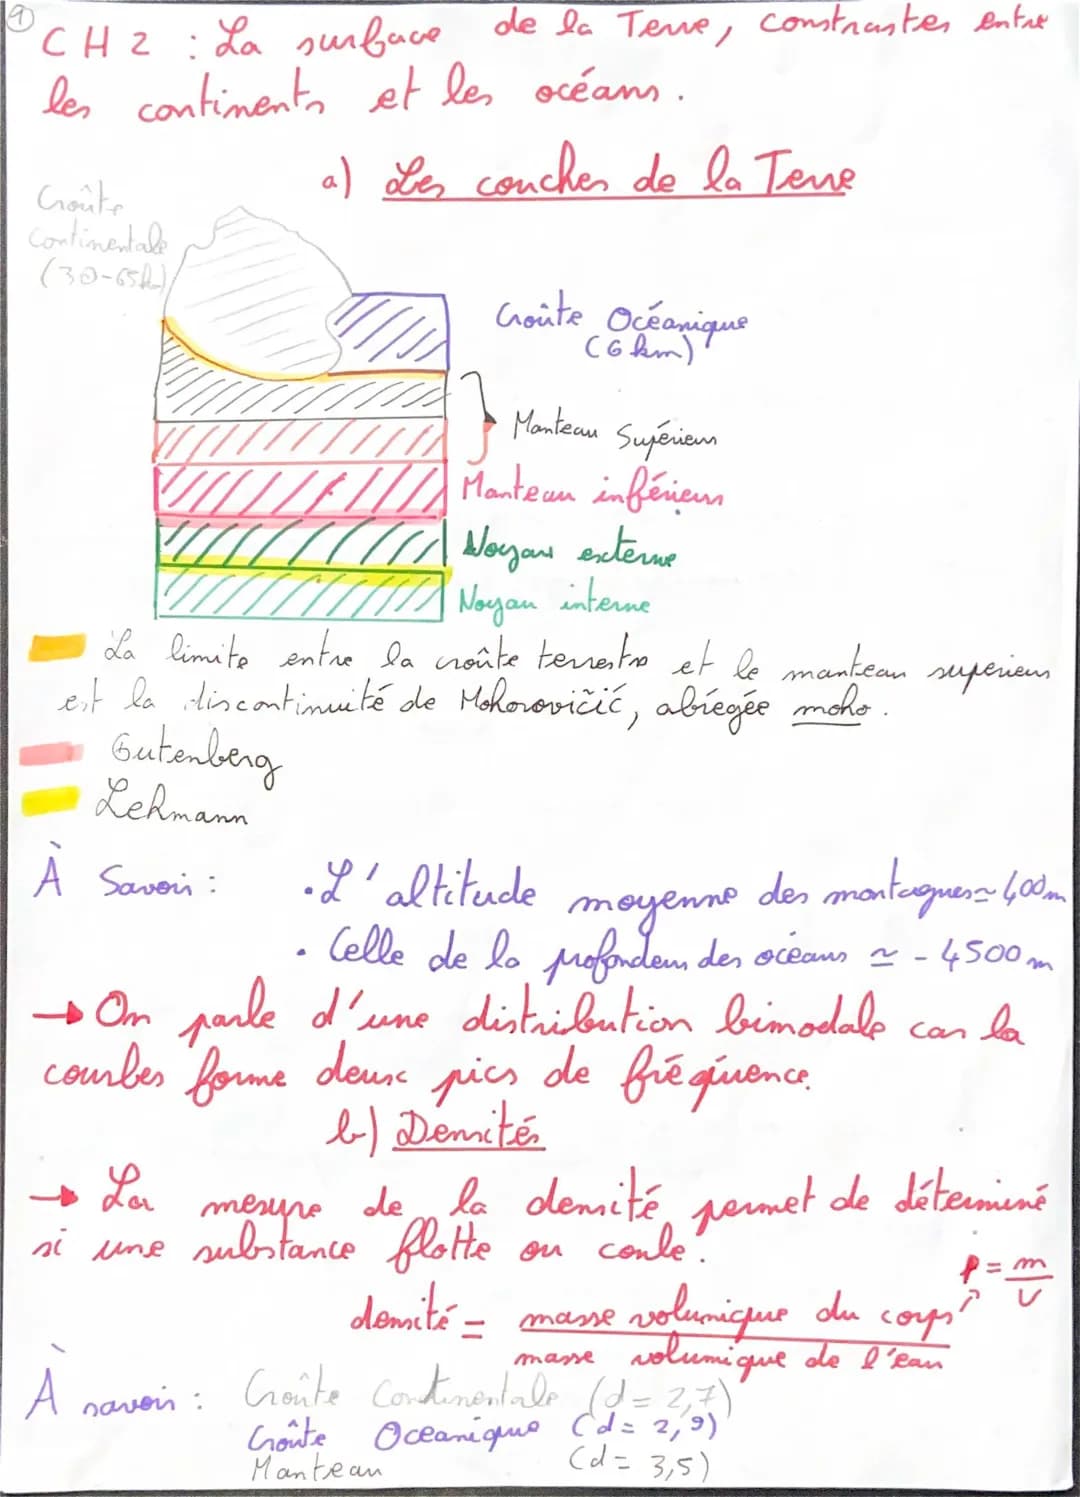 1
CH 2 : La surface de la Terre, constrastes entre
les continents et les océans.
a) Les couches de la Terre
Croûte
Continentale
(30-65km)
Croûte Océanique
(6 km)
Manteau Supérieur
Manteau inférieur
Noyau externe
Noyau interne
La limite entre la croûte terrestre et le manteau supérieur
est la discontinuité de Mohorovičić, abrégée moho.
Gutenberg
Lehmann
À Savoir : • L'altitude moyenne des montagnes ≃ 400m
• Celle de la profondeur des océans ≃ - 4500 m
→ On parle d'une distribution bimodale car la
courbes forme deux pics de fréquence.
b) Densités
→ La mesure de la densité permet de déterminé
si une substance flotte ou coule.
ρ = m/V
densité = masse volumique du corps
masse volumique de l'eau
À savoir : Croûte Continentale (d = 2,7)
Croûte Oceanique (d = 2,9)
Manteau (d = 3,5)